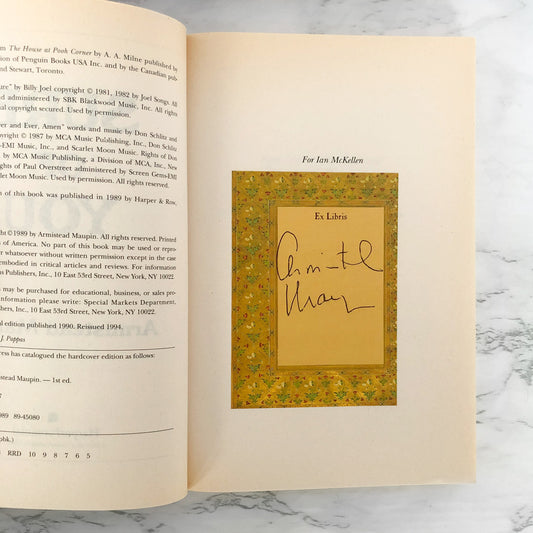 m The House at Pooh Corner by A. A. Milne published by
ion of Penguin Books USA Inc. and by the Canadian pub-
nd Stewart, Toronto.
ure" by Billy Joel copyright © 1981, 1982 by Joel Songs. All
d administered by SBK Blackwood Music, Inc. All rights
al copyright secured. Used by permission.
ver and Ever, Amen" words and music by Don Schlitz and
opyright © 1987 by MCA Music Publishing, Inc., Don Schlitz
n-EMI Music, Inc., and Scarlet Moon Music. Rights of Don
by MCA Music Publishing, a Division of MCA, Inc., New
Rights of Paul Overstreet administered by Screen Gems-EMI
rlet Moon Music. Used by permission. All rights reserved.
n of this book was published in 1989 by Harper & Row,
ht © 1989 by Armistead Maupin. All rights reserved. Printed
s of America. No part of this book may be used or repro-
r whatsoever without written permission except in the case
embodied in critical articles and reviews. For information
s Publishers, Inc., 10 East 53rd Street, New York, NY 10022.
may be purchased for educational, business, or sales pro-
nformation please write: Special Markets Department,
lishers, Inc., 10 East 53rd Street, New York, NY 10022.
al edition published 1990. Reissued 1994.
J. Pappas
ress has catalogued the hardcover edition as follows:
mistead Maupin. — 1st ed.
7
989 89-45080
pbk.)
RRD 10 9 8 7 6 5
For Ian McKellen
Ex Libris